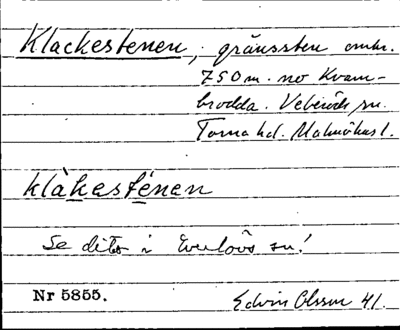 Klackestenen, gränssten omkr.
750 m. no Kvarn-
brodda. Veberöds sn.
Torna hd. Malmöhus l.
klàkesténen
Se dito i Everlövs sn!
Nr 5855.
Edvin Olsson 41.